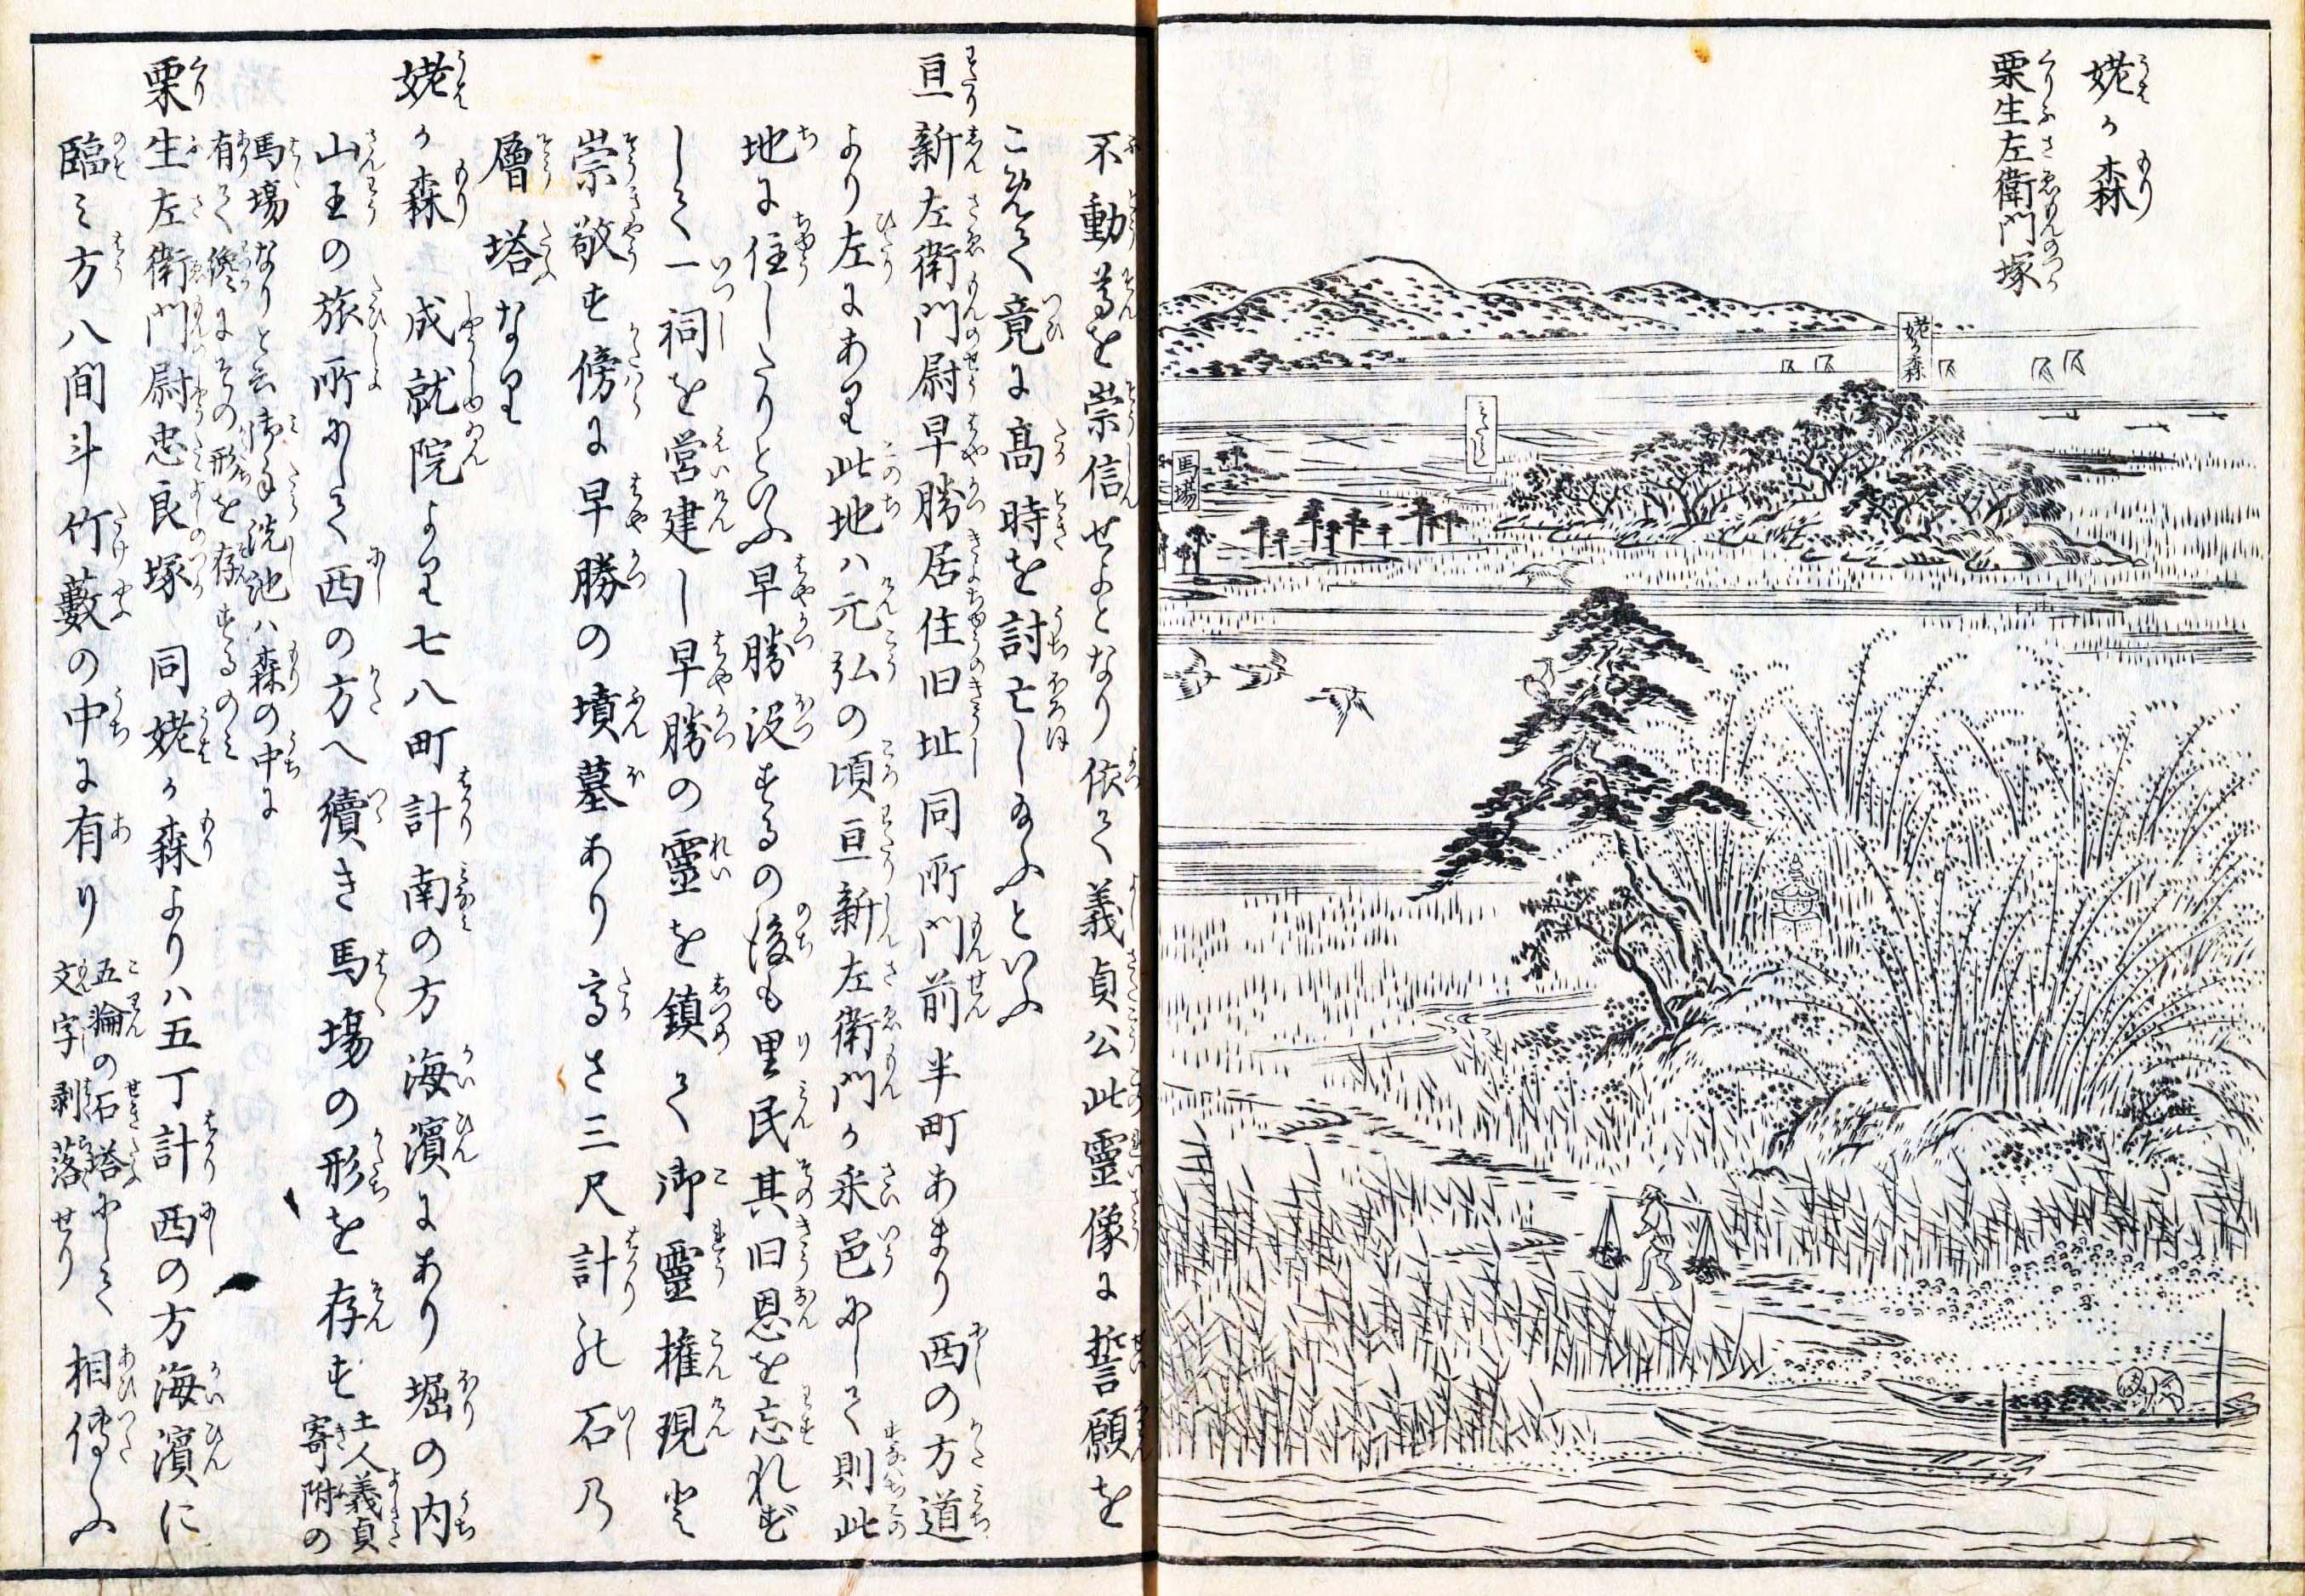 姥か森
栗生左衛門塚
姥か森
みたらし
馬場
不動尊を崇信せよとなり依て義貞公此霊像に誓願を
こめて竟に高時を討亡し給ふといふ
亘新左衛門尉早勝居住旧址 同所門前半町あまり西の方道
より左にあり此地ハ元弘の頃亘新左衛門か采邑にして則此
地に住したりといふ早勝没するの後も里民其旧恩を忘れず
して一祠を営建し早勝の霊を鎮て御霊権現と
崇敬す傍に早勝の墳墓あり高さ三尺計の石の
層塔なり
姥か森 成就院より七八町計南の方海濱にあり堀の内
山王の旅所にして西の方へ續き馬場の形を存す
土人義貞
寄附の
馬場なりと云御手洗池ハ森の中に
有て纔にその形を存するのミ
栗生左衛門尉忠良塚 同姥か森よりハ五丁計西の方海濱に
臨ミ方八間斗竹藪の中に有り
五輪の石塔にして
文字剥落せり
相傳ふ